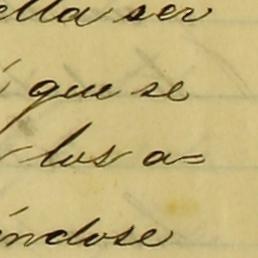 ella ser
que se
los a=
éndose